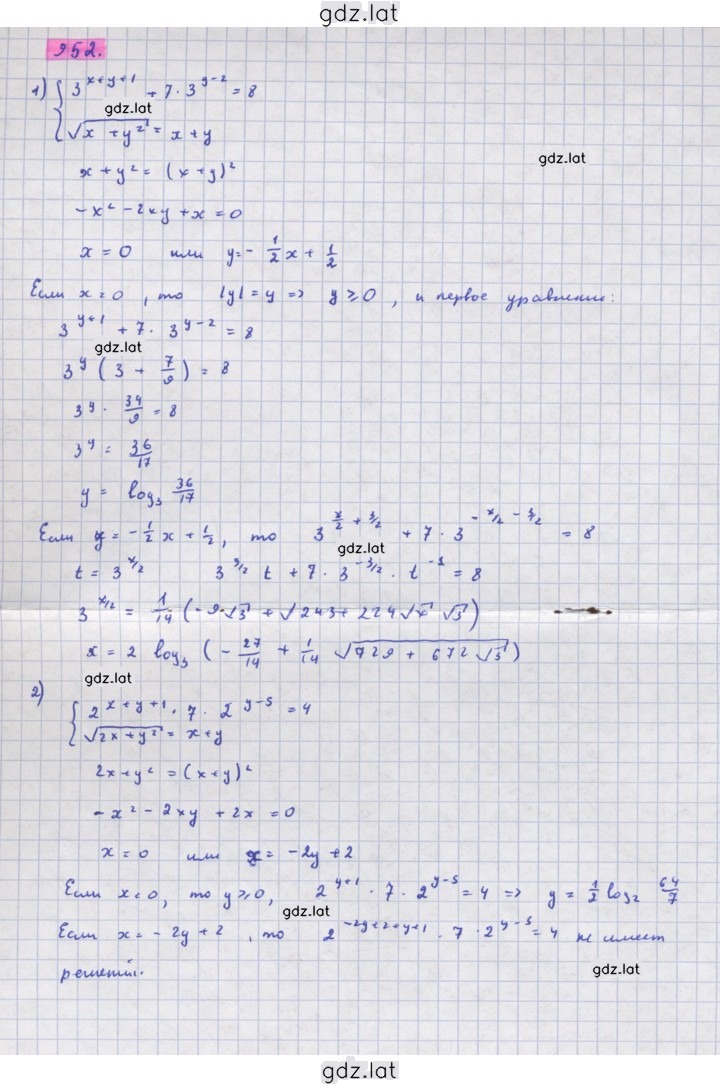 gdz.lat
952.
1) { 3^{x+y+1} + 7 · 3^{y-2} = 8
gdz.lat
√(x + y²) = x + y
gdz.lat
x + y² = (x + y)²
-x² - 2xy + x = 0
x = 0 или y = - 1/2 x + 1/2
Если x = 0, то |y| = y => y ⩾ 0, и первое уравнение:
3^{y+1} + 7 · 3^{y-2} = 8
gdz.lat
3^y (3 + 7/9) = 8
3^y · 34/9 = 8
3^y = 36/17
y = log₃ 36/17
Если y = - 1/2 x + 1/2, то 3^{x/2 + 3/2} + 7 · 3^{-x/2 - 3/2} = 8
gdz.lat
t = 3^{x/2} 3^{3/2} t + 7 · 3^{-3/2} · t^{-1} = 8
x = 2 log₃ (- 27/14 + 1/14 √(729 + 672√3))
gdz.lat
2) { 2^{x+y+1} · 7 · 2^{y-5} = 4
√(2x + y²) = x + y
2x + y² = (x + y)²
-x² - 2xy + 2x = 0
x = 0 или x = -2y + 2
Если x = 0, то y ⩾ 0, 2^{y+1} · 7 · 2^{y-5} = 4 => y = 1/2 log₂ 64/7
gdz.lat
Если x = -2y + 2, то 2^{-2y+2+y+1} · 7 · 2^{y-5} = 4 не имеет
gdz.lat
решений.
gdz.lat